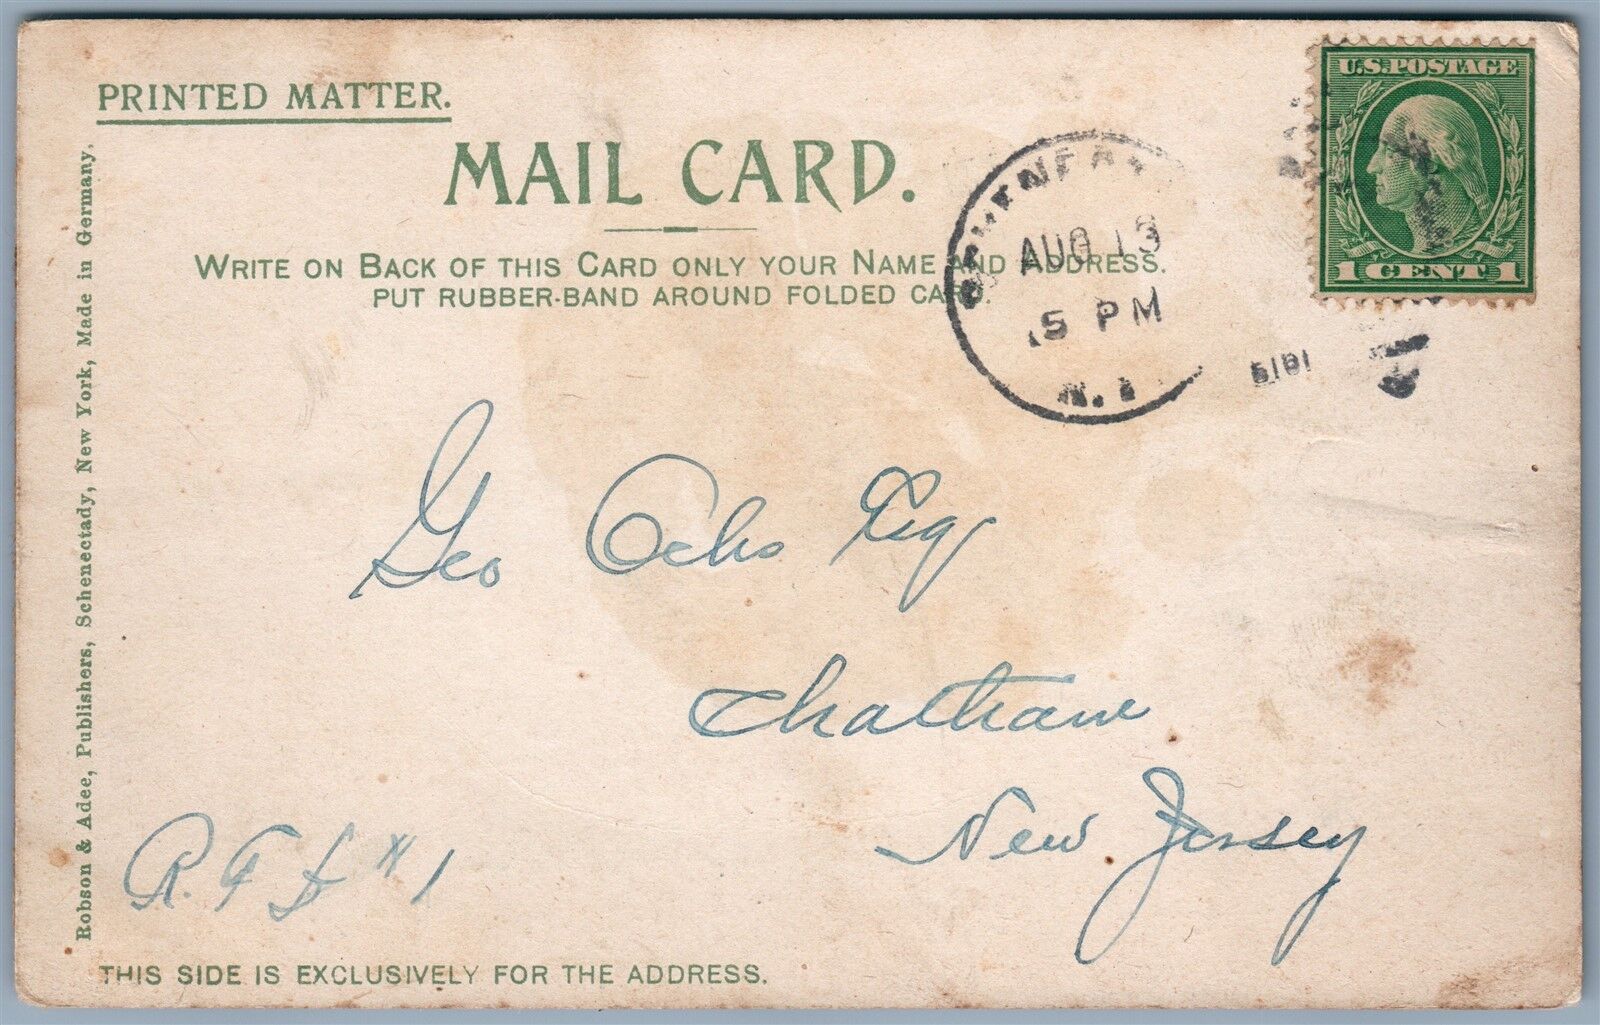 PRINTED MATTER.
MAIL CARD.
WRITE ON BACK OF THIS CARD ONLY YOUR NAME AND ADDRESS.
PUT RUBBER-BAND AROUND FOLDED CARD.
U.S. POSTAGE
1 CENT 1
AUG 13
5 PM
N.Y
Geo Ochs Esq
Chatham
New Jersey
R. F D # 1
Robson & Adee, Publishers, Schenectady, New York, Made in Germany.
THIS SIDE IS EXCLUSIVELY FOR THE ADDRESS.